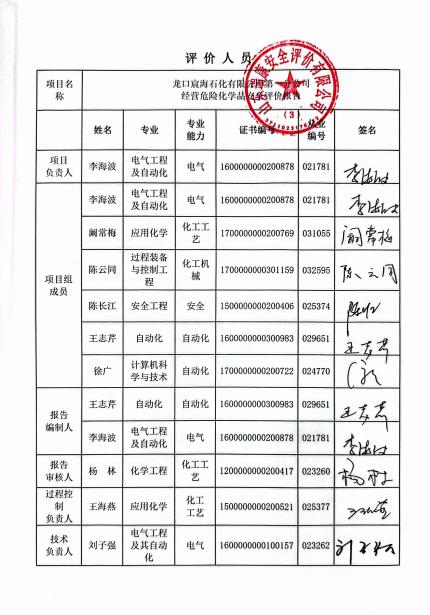 评价人员
项目名称
龙口宸海石化有限公司第一分公司
经营危险化学品安全评价报告
姓名 专业 专业能力 证书编号 从业编号 签名
项目负责人 李海波 电气工程及自动化 电气 1600000000200878 021781 李海波
项目组成员 李海波 电气工程及自动化 电气 1600000000200878 021781 李海波
阚常梅 应用化学 化工工艺 1700000000200769 031055 阚常梅
陈云同 过程装备与控制工程 化工机械 1700000000301159 032595 陈云同
陈长江 安全工程 安全 1500000000200406 025374
王志芹 自动化 自动化 1600000000300983 029651 王志芹
徐广 计算机科学与技术 自动化 1700000000200722 024770
报告编制人 王志芹 自动化 自动化 1600000000300983 029651 王志芹
李海波 电气工程及自动化 电气 1600000000200878 021781 李海波
报告审核人 杨林 化学工程 化工工艺 1200000000200417 023260 杨林
过程控制负责人 王海燕 应用化学 化工工艺 1500000000200521 025377
技术负责人 刘子强 电气工程及其自动化 电气 1600000000100157 023262 刘子强
安全评价有限公司
(3)